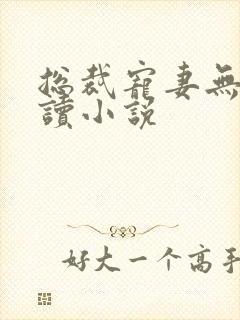 总裁寵妻無
讀小説
好大一个高手